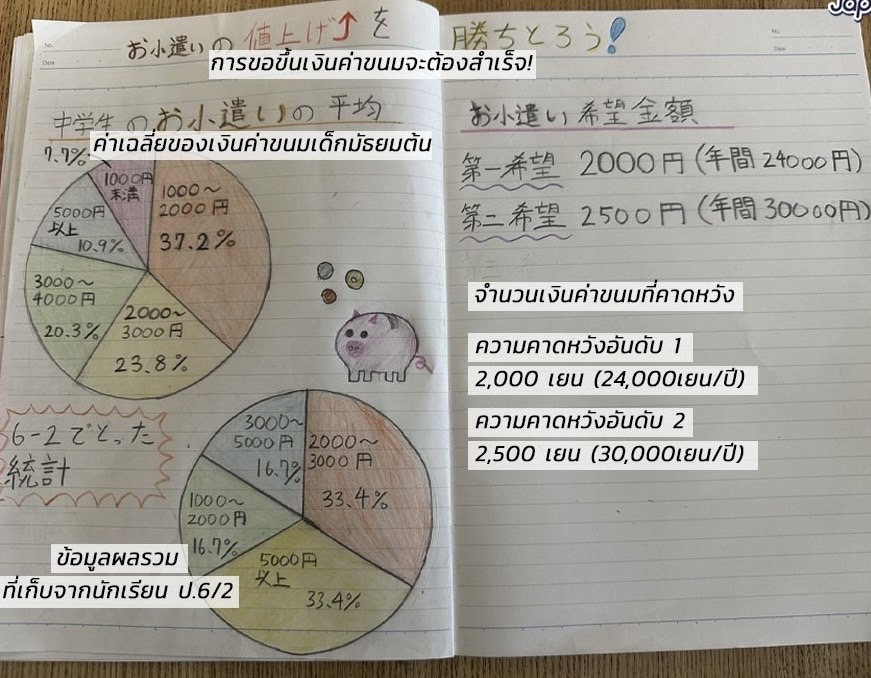 お小遣いの値上げ↑を勝ちとろう!
การขอขึ้นเงินค่าขนมจะต้องสำเร็จ!
No.
Date
No.
Date
中学生のお小遣いの平均
ค่าเฉลี่ยของเงินค่าขนมเด็กมัธยมต้น
7.7%
1000円
未満
1000〜
2000円
37.2%
5000円
以上
10.9%
3000〜
4000円
20.3%
2000〜
3000円
23.8%
6-2でとった
統計
3000〜
5000円
16.7%
2000〜
3000円
33.4%
1000〜
2000円
16.7%
5000円
以上
33.4%
ข้อมูลผลรวม
ที่เก็บจากนักเรียน ป.6/2
お小遣い希望金額
第一希望 2000円(年間24000円)
第二希望 2500円(年間30000円)
จำนวนเงินค่าขนมที่คาดหวัง
ความคาดหวังอันดับ 1
2,000 เยน (24,000เยน/ปี)
ความคาดหวังอันดับ 2
2,500 เยน (30,000เยน/ปี)